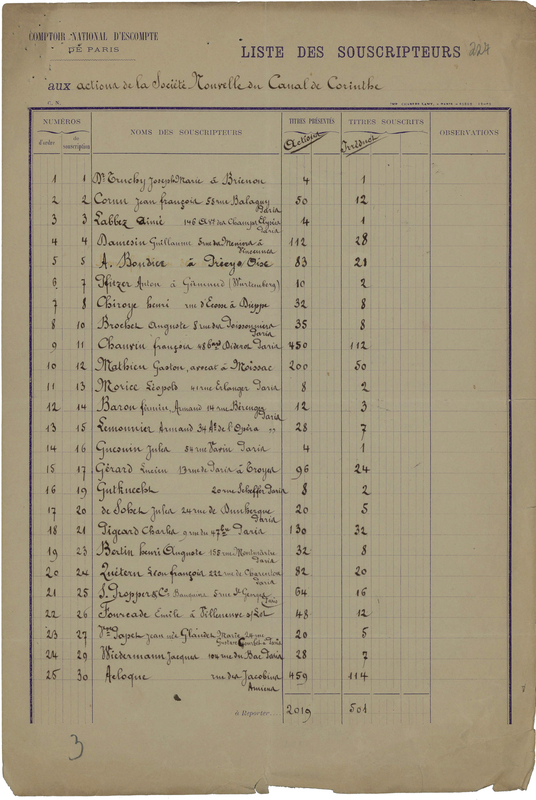 COMPTOIR NATIONAL D'ESCOMPTE
DE PARIS
LISTE DES SOUSCRIPTEURS 224
aux actions de la Société Nouvelle du Canal de Corinthe
C. N.
NUMÉROS NOMS DES SOUSCRIPTEURS TITRES PRÉSENTÉS TITRES SOUSCRITS OBSERVATIONS
d'ordre de souscription Actions Irréduct
1 1 Truchy Joseph Marie à Brienon 4 1
2 2 Cornu Jean françois 55 rue Balagny Paris 50 12
3 3 Labbez Aimé 146 Av. des Champs Elysées Paris 4 1
4 4 Damesin Guillaume 5 rue des Meuniers à Vincennes 112 28
5 5 A. Bondiez à Précy s Oise 83 21
6 7 Pfitzer Anton à Gemünd (Wurtemberg) 10 2
7 8 Chiroye henri rue d'Ecosse à Dieppe 32 8
8 10 Brochet Auguste 8 rue des Poissonniers Paris 35 8
9 11 Chauvin françois 48 bd Diderot Paris 450 112
10 12 Mathieu Gaston, avocat à Moissac 200 50
11 13 Morice Léopold 41 rue Erlanger Paris 8 2
12 14 Baron firmin, Armand 14 rue Bérenger Paris 12 3
13 15 Lemonnier Armand 34 Av. de l'Opéra " 28 7
14 16 Guesnin Jules 84 rue Savin Paris 4 1
15 17 Gérard Lucien 13 rue de Paris à Troyes 96 24
16 19 Gutknecht 20 rue Scheffer Paris 8 2
17 20 de Sohet Jules 24 rue de Dunkerque Paris 20 5
18 21 Pigeard Charles 9 rue du 4 7bre Paris 130 32
19 23 Bertin henri Auguste 155 rue Montmartre Paris 32 8
20 24 Quétern Léon françois 222 rue de Charenton Paris 82 20
21 25 S. Propper & Co Banquiers 5 rue St Georges Paris 64 16
22 26 Fourcade Emile à Villeneuve s/Lot 48 12
23 27 Vve Papet Jean née Glandet Marie 20 5
24 29 Wiedermann Jacques 104 rue du Bac Paris 28 7
25 30 Acloque rue des Jacobins Amiens 459 114
à Reporter 2019 501
3